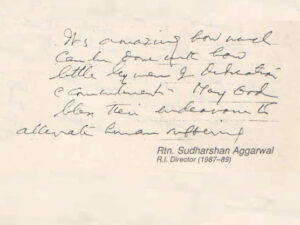 It's amazing how much
can be done with how
little by men of dedication
& commitment. May God
bless their endeavour to
alleviate human suffering
Rtn. Sudharshan Aggarwal
R.I. Director (1987–89)